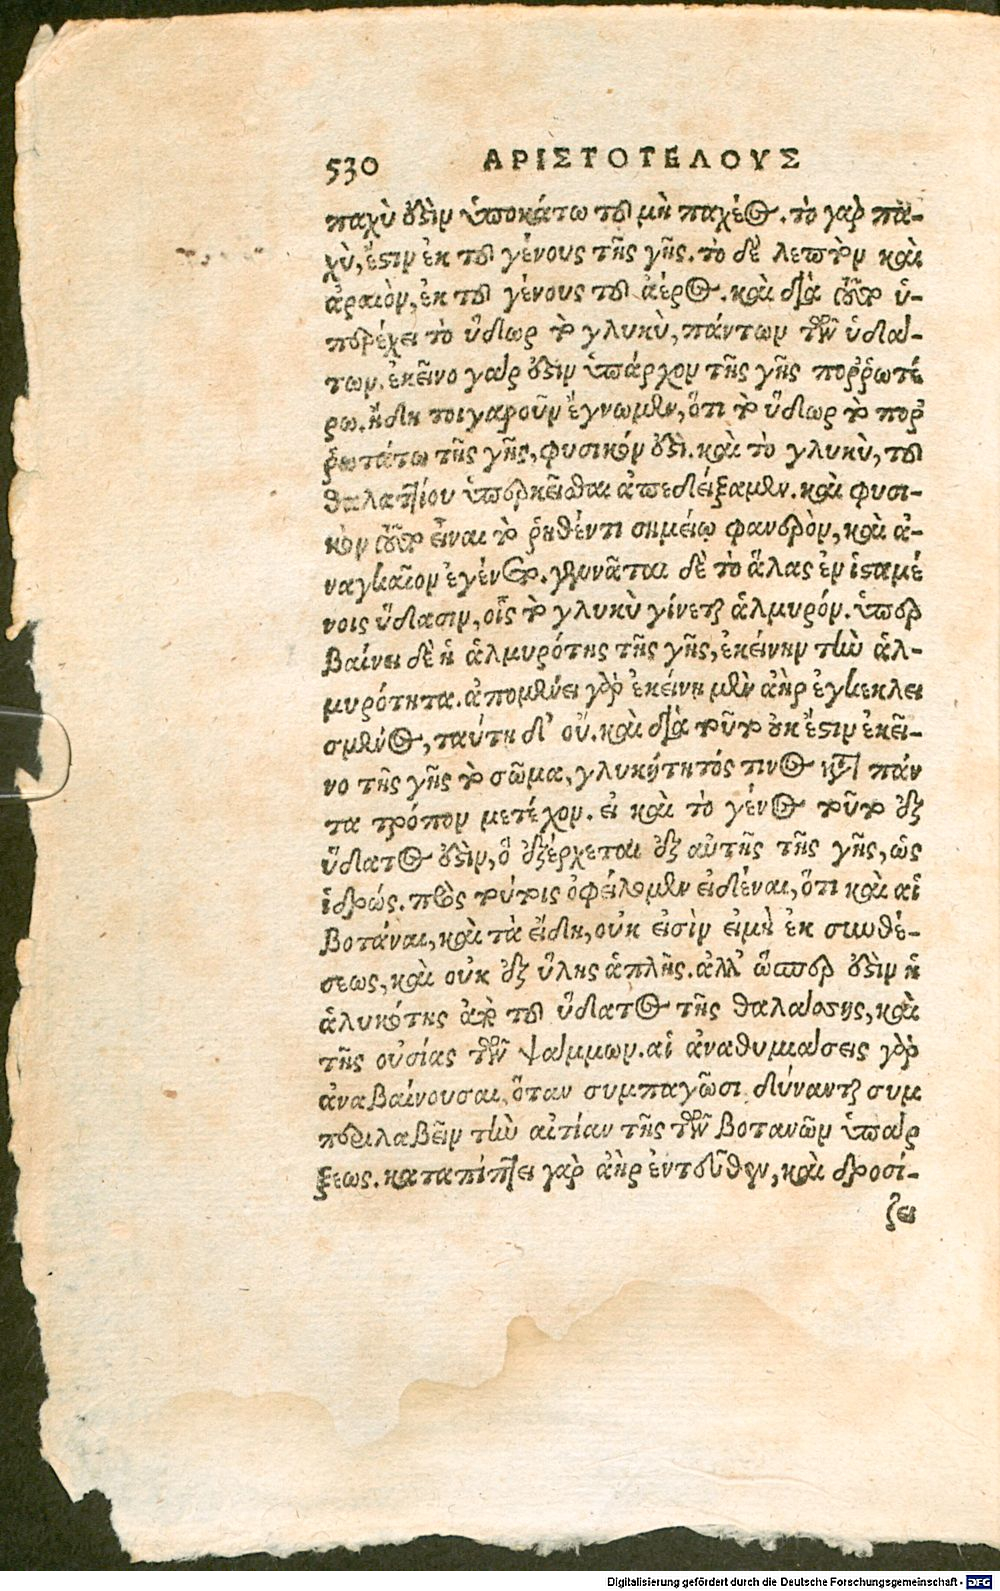 530 ΑΡΙΣΤΟΤΕΛΟΥΣ
παχὺ ἐστὶν ὑποκάτω τοῦ μὴ παχέος. τὸ γὰρ πα-
χὺ, ἔστιν ἐκ τοῦ γένους τῆς γῆς. τὸ δὲ λεπτὸν καὶ
ἀραιὸν, ἐκ τοῦ γένους τοῦ ἀέρος. καὶ διὰ τοῦτο ὑ-
περέχει τὸ ὕδωρ τὸ γλυκὺ, πάντων τῶν ὑδά-
των. ἐκεῖνο γάρ ἐστιν ὑπάρχον τῆς γῆς ποῤῥωτέ
ρω. ἤδη τοιγαροῦν ἔγνωμεν, ὅτι τὸ ὕδωρ τὸ ποῤ
ῥωτάτω τῆς γῆς, φυσικόν ἐστι. καὶ τὸ γλυκὺ, τοῦ
θαλαττίου ὑπερκεῖσθαι ἀπεδείξαμεν. καὶ φυσι-
κὸν τοῦτο εἶναι τῷ ῥηθέντι σημείῳ φανερὸν, καὶ ἀ-
ναγκαῖον ἐγένετο. γεννᾶται δὲ τὸ ἅλας ἐν ἱσταμέ
νοις ὕδασιν, οἷς τὸ γλυκὺ γίνεται ἁλμυρόν. ὑπερ
βαίνει δὲ ἡ ἁλμυρότης τῆς γῆς, ἐκείνην τὴν ἁλ-
μυρότητα. ἀπομένει γὰρ ἐκείνη μὲν ἀὴρ ἐγκεκλει
σμένος, ταύτη δ’ οὔ. καὶ διὰ τοῦτο οὐκ ἔστιν ἐκεῖ-
νο τῆς γῆς τὸ σῶμα, γλυκύτητός τινος κατὰ πάν
τα τρόπον μετέχον. εἰ καὶ τὸ γένος τοῦτο ἐξ
ὕδατος ἐστὶν, ὃ ἐξέρχεται ἐξ αὐτῆς τῆς γῆς, ὡς
ἱδρώς. πρὸς τούτοις ὀφείλομεν εἰδέναι, ὅτι καὶ αἱ
βοτάναι, καὶ τὰ εἴδη, οὐκ εἰσὶν εἰμὴ ἐκ συνθέ-
σεως, καὶ οὐκ ἐξ ὕλης ἁπλῆς. ἀλλ’ ὥσπερ ἐστὶν ἡ
ἁλυκότης ἀπὸ τοῦ ὕδατος τῆς θαλάσσης, καὶ
τῆς οὐσίας τῶν ψάμμων. αἱ ἀναθυμιάσεις γὰρ
ἀναβαίνουσαι, ὅταν συμπαγῶσι δύνανται συμ
περιλαβεῖν τὴν αἰτίαν τῆς τῶν βοτανῶν ὑπάρ
ξεως. καταπίπτει γὰρ ἀὴρ ἐντεῦθεν, καὶ δροσί-
ζει
Digitalisierung gefördert durch die Deutsche Forschungsgemeinschaft - DFG